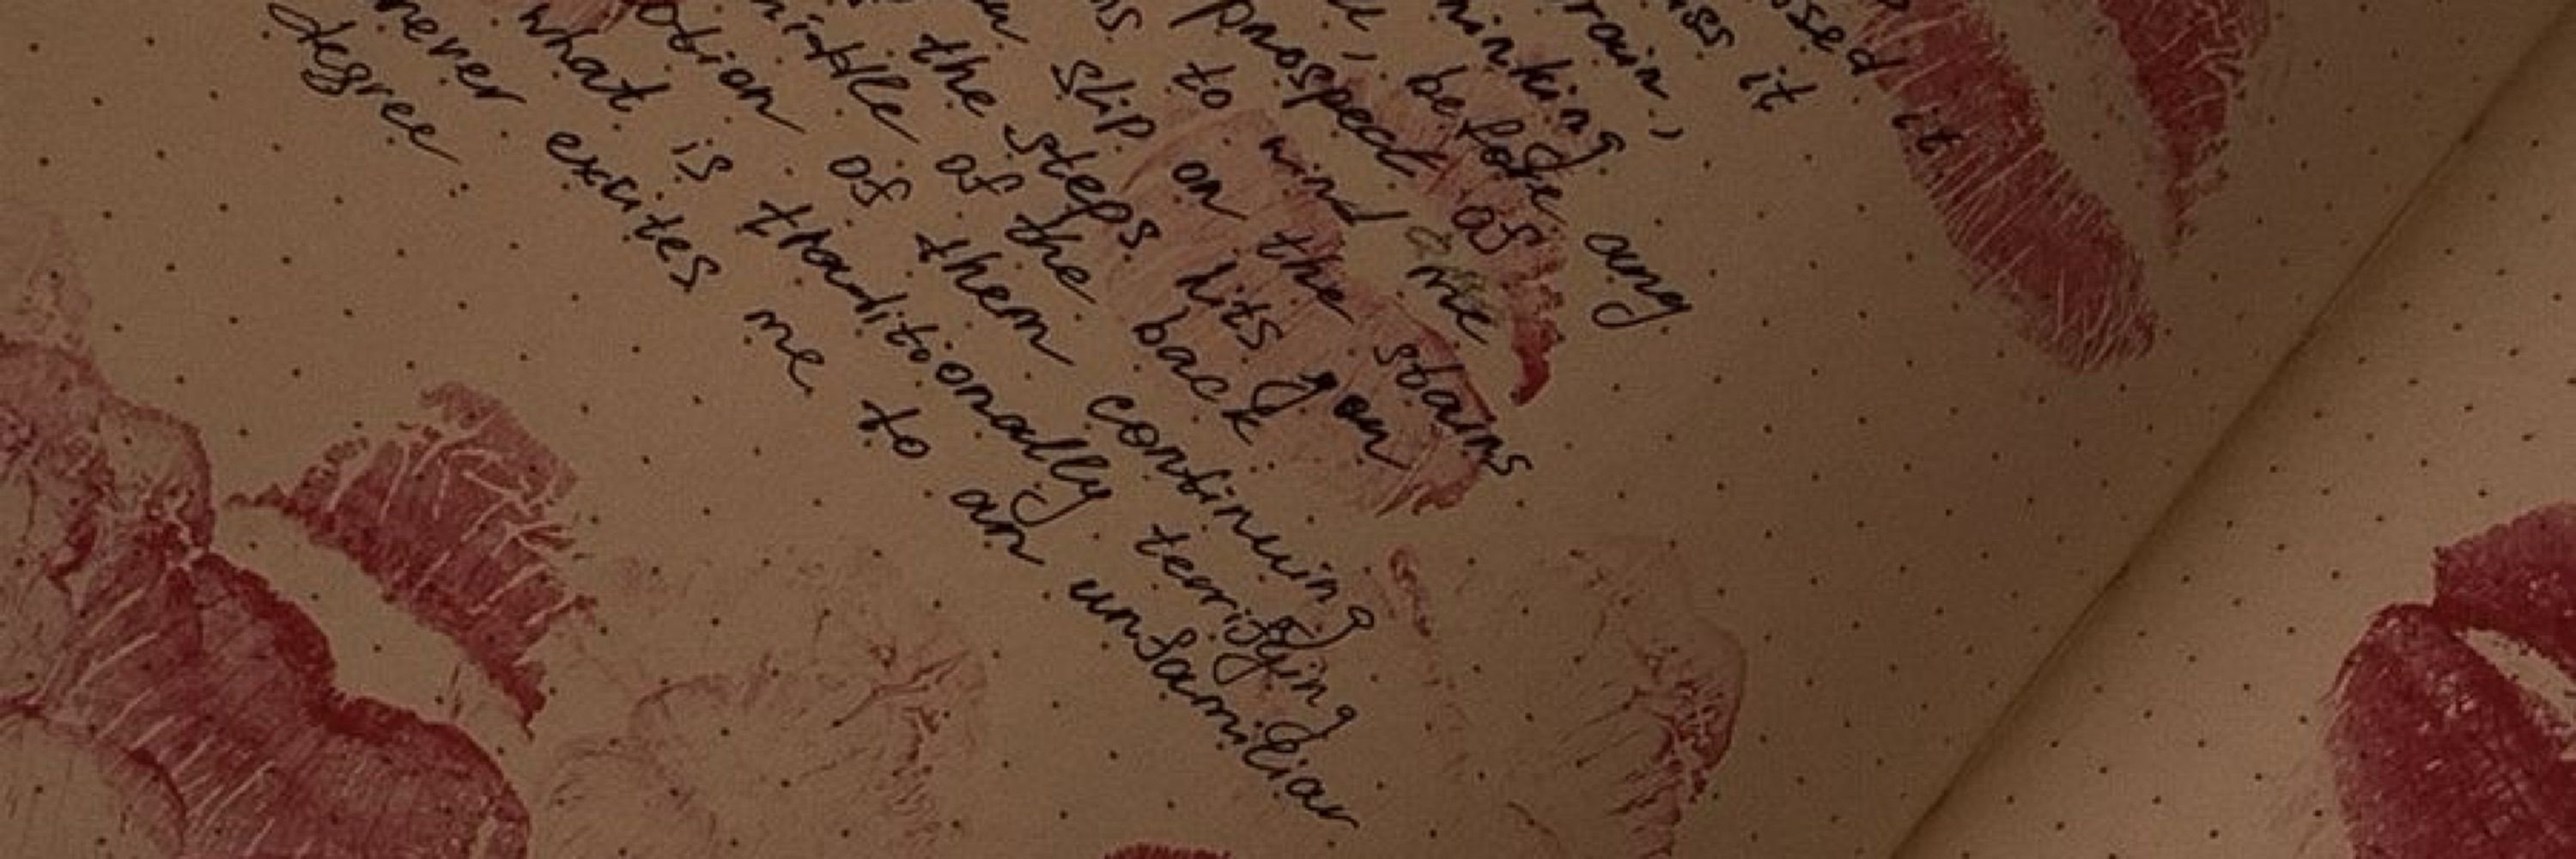 it
it
rain,
before any
prospect of
to wind me
slip on the stairs
the steps hits you
middle of the back
of them continuing
what is traditionally terrifying
never excites me to an unfamiliar
degree.